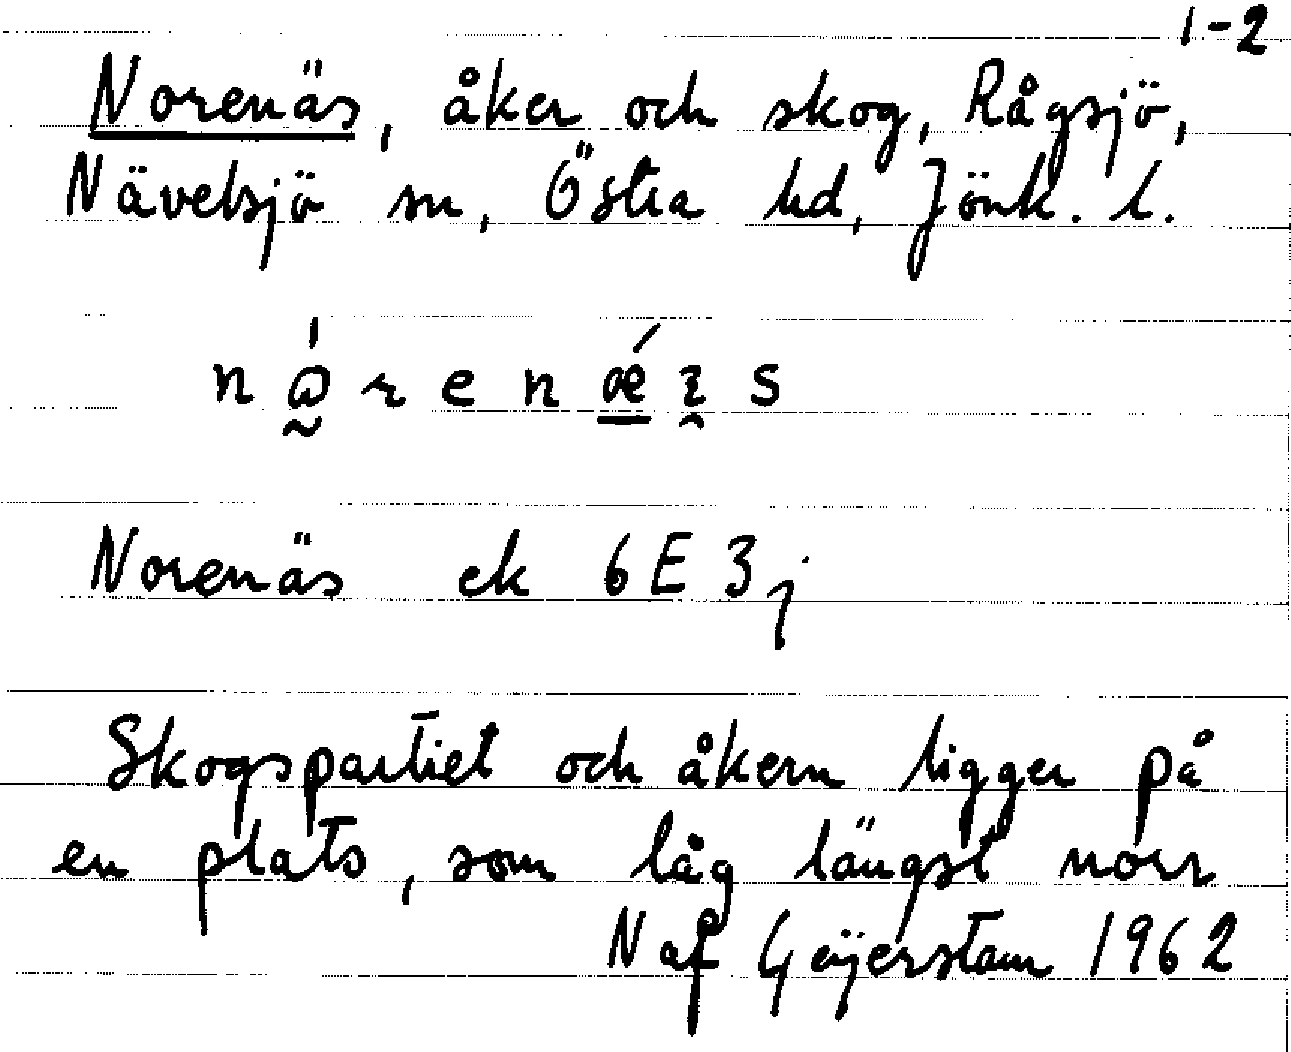 1-2
Norenäs, åker och skog, Rågsjö,
Nävelsjö sn, Östra hd, Jönk. l.
Norenäs ek 6E 3j
Skogspartiet och åkern ligger på
en plats, som låg längst norr
N af Geijerstam 1962